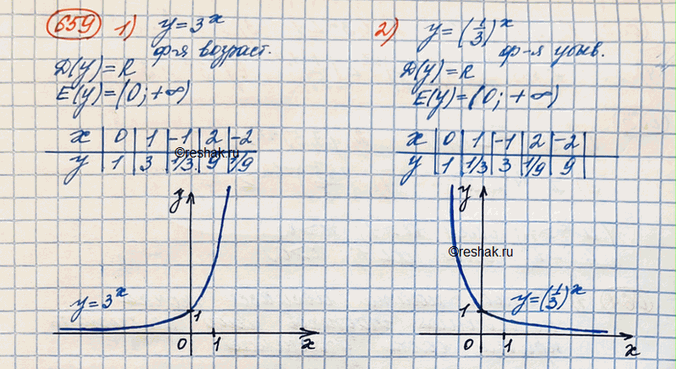 659 1) y = 3^x
ф-я возраст.
D(y) = R
E(y) = (0; +∞)
x | 0 | 1 | -1 | 2 | -2
y | 1 | 3 | 1/3 | 9 | 1/9
©reshak.ru
y
y = 3^x
1
0 1 x
2) y = (1/3)^x
ф-я убыв.
D(y) = R
E(y) = (0; +∞)
x | 0 | 1 | -1 | 2 | -2
y | 1 | 1/3 | 3 | 1/9 | 9
y
©reshak.ru
y = (1/3)^x
1
0 1 x